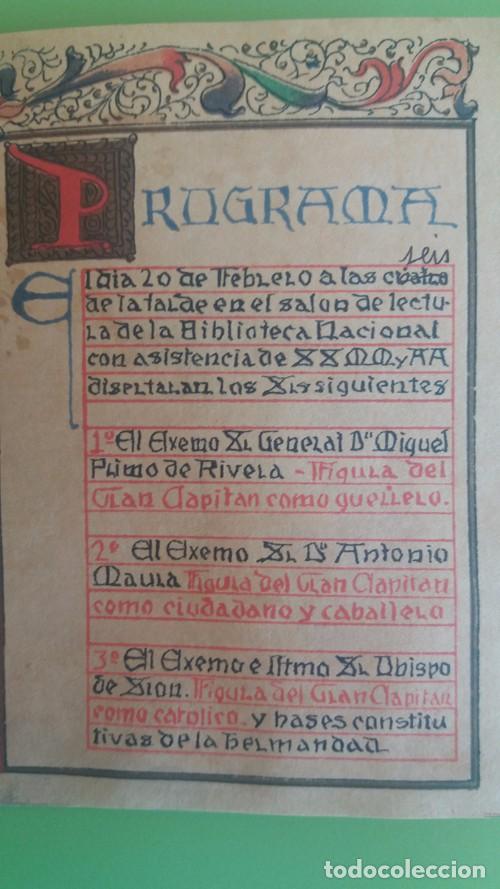 PROGRAMA
seis
El dia 20 de Febrero a las cuatro
de la tarde en el salon de lectu-
ra de la Biblioteca Nacional
con asistencia de SSMM y AA
disertaran los Srs siguientes
1º El Exemo Sr General Dn Miguel
Primo de Rivera - Figura del
Gran Capitan como guerrero.
2º El Exemo Sr Dn Antonio
Maura Figura del Gran Capitan
como ciudadano y caballero
3º El Exemo e Iltmo Sr Obispo
de Sion. Figura del Gran Capitan
como catolico. y bases constitu
tivas de la hermandad
todocoleccion